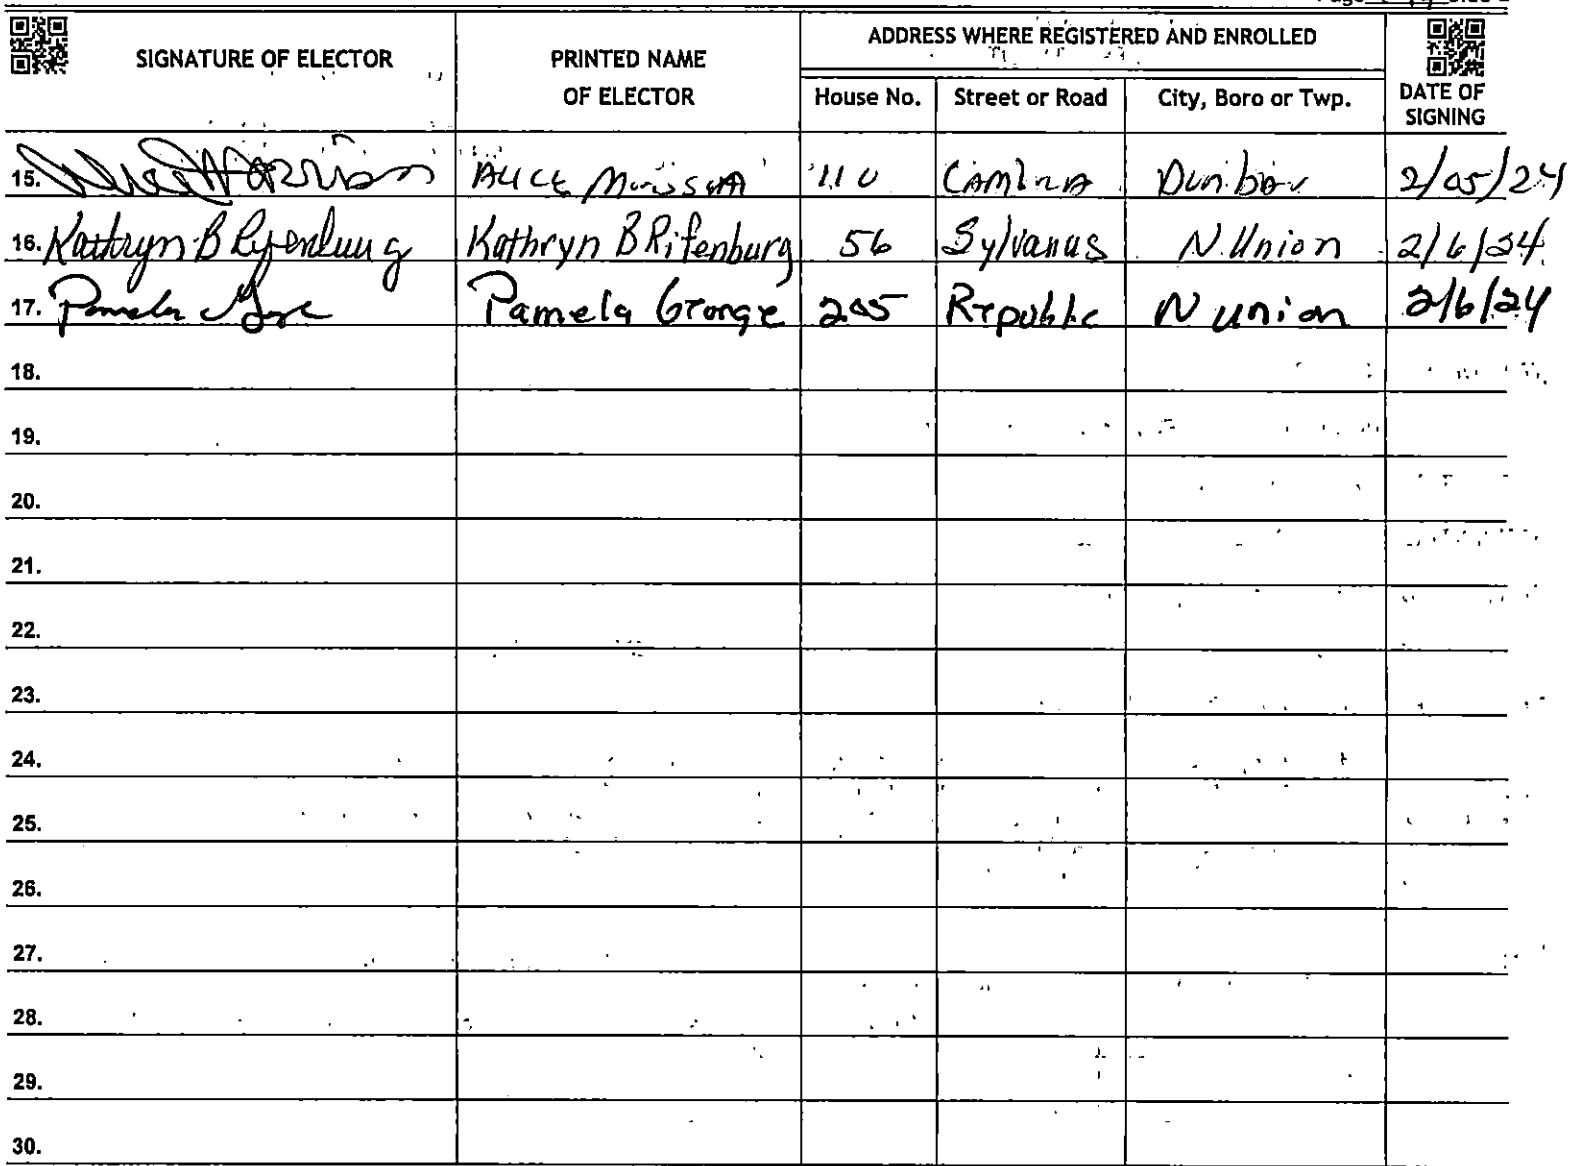 SIGNATURE OF ELECTOR
PRINTED NAME
OF ELECTOR
ADDRESS WHERE REGISTERED AND ENROLLED
House No. Street or Road City, Boro or Twp.
DATE OF
SIGNING
15. ALICE 110 Dunbar 2/05/24
16. Kathryn B Rifenburg Kathryn B Rifenburg 56 Sylvanus N. Union 2/6/24
17. Pamela George Pamela George 205 Republic N Union 2/6/24
18.
19.
20.
21.
22.
23.
24.
25.
26.
27.
28.
29.
30.